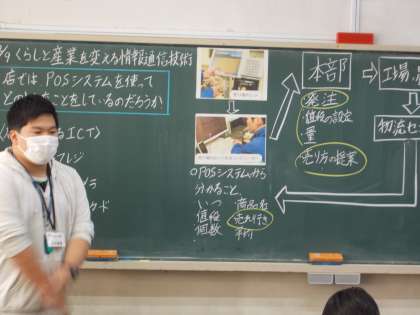 9 くらしと産業を変える情報通信技術
店ではPOSシステムを使って
どの
ことをしているのだろうか
ICT
レジ
○POSシステムから
分かること
いつ 商品名
値段 売れ行き
個数
本部
発注
値段の設定
量
売り方の提案
工場
物流セ